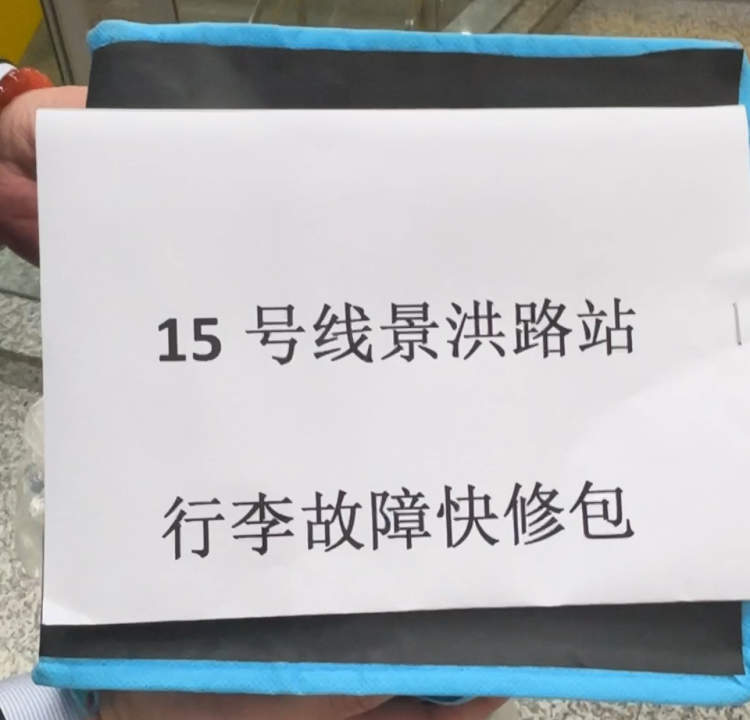 15 号线景洪路站
行李故障快修包